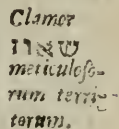 Clamor
שאון
meticuloſo-
rum terri-
torum.